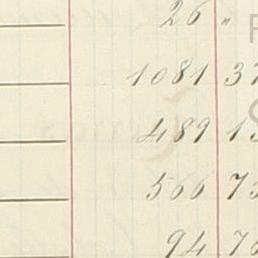 26 "
1081 37
489 13
566 73
94 76